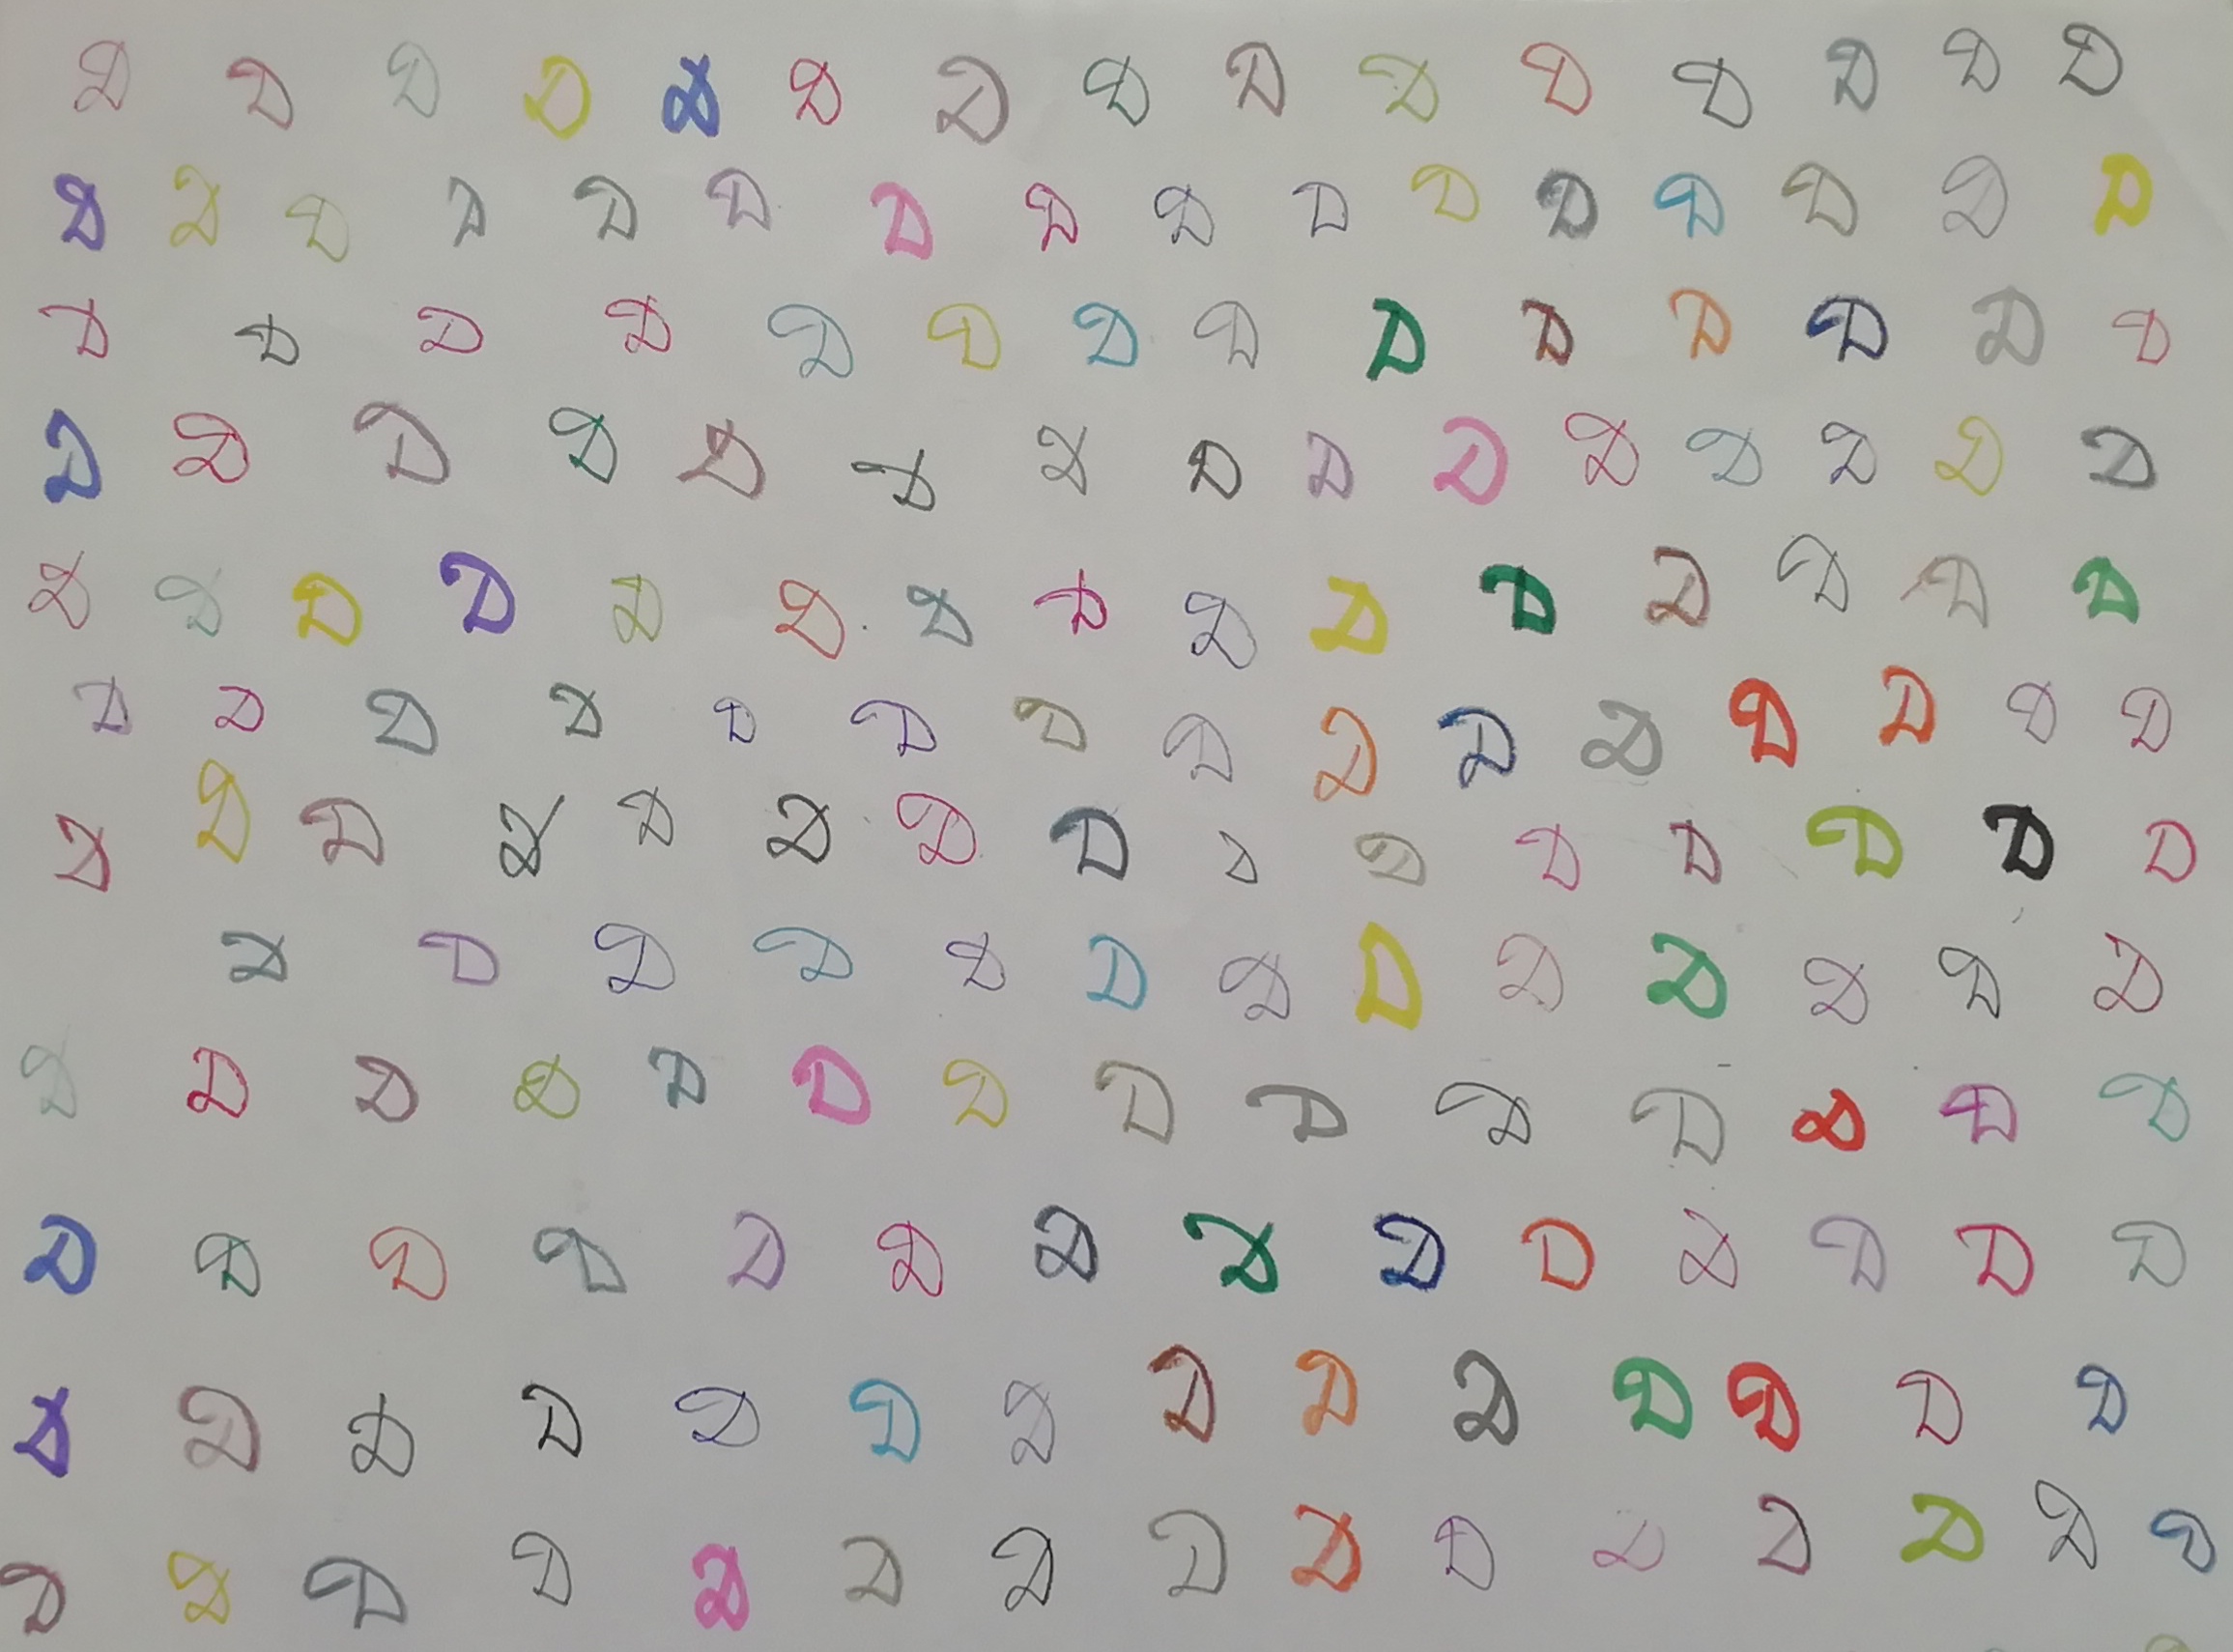 D D D D D D D D D D D D D D D
D D D D D D D D D D D D D D D D
D D D D D D D D D D D D D D
D D D D D D D D D D D D D D D
D D D D D D D D D D D D D D D
D D D D D D D D D D D D D D D
D D D D D D D D D D D D D D D
D D D D D D D D D D D D D
D D D D D D D D D D D D D D
D D D D D D D D D D D D D D
D D D D D D D D D D D D D D
D D D D D D D D D D D D D D D